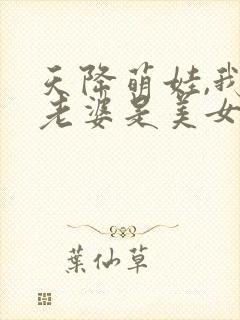 天降萌娃,我
老婆是美女
葉仙草